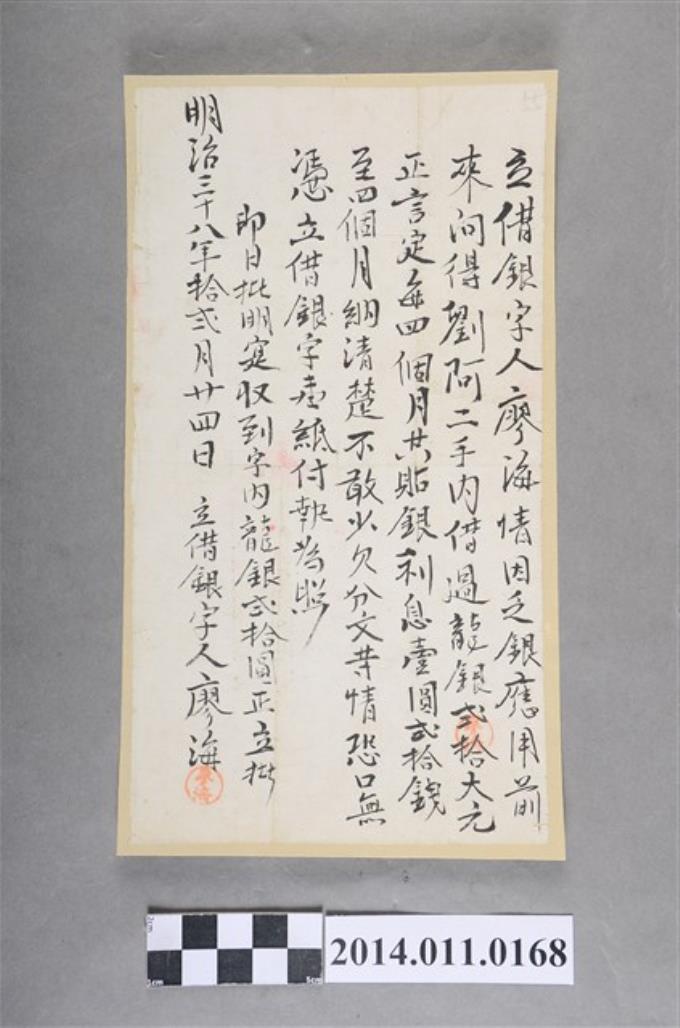 立借銀字人廖海情因乏銀應用前
來向得劉阿二手內借過龍銀弍拾大元
正言定每四個月共貼銀利息壹圓弍拾錢
至四個月納清楚不敢少欠分文等情恐口無
憑立借銀字壹紙付執為照
即日批明寔收到字內龍銀弍拾圓正立批
明治三十八年拾弍月廿四日 立借銀字人廖海
2cm
1cm
5cm
2014.011.0168